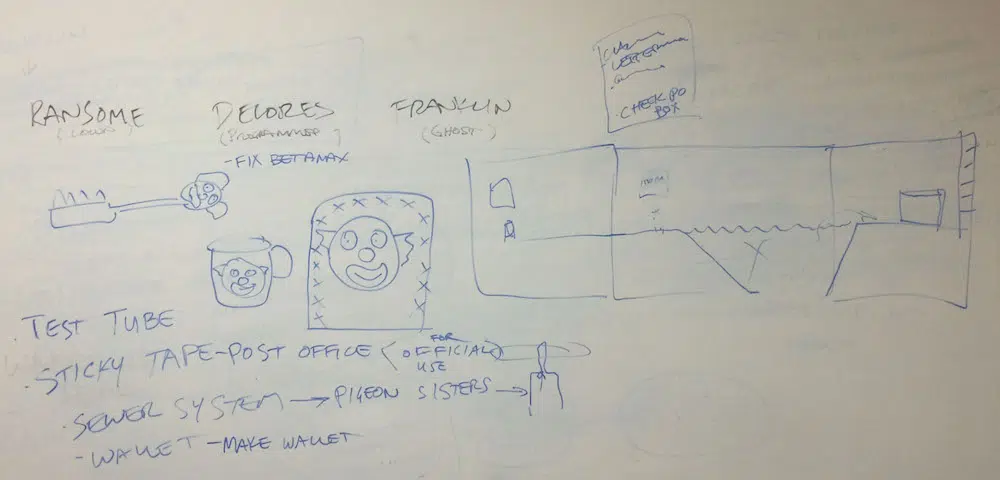 RANSOME
(CLOWN)
DELORES
(PROGRAMMER)
- FIX BETAMAX
FRANKLIN
(GHOST)
CHECK PO
BOX
TEST TUBE
· STICKY TAPE-POST OFFICE (FOR OFFICIAL USE)
· SEWER SYSTEM → PIGEON SISTERS →
- WALLET - MAKE WALLET